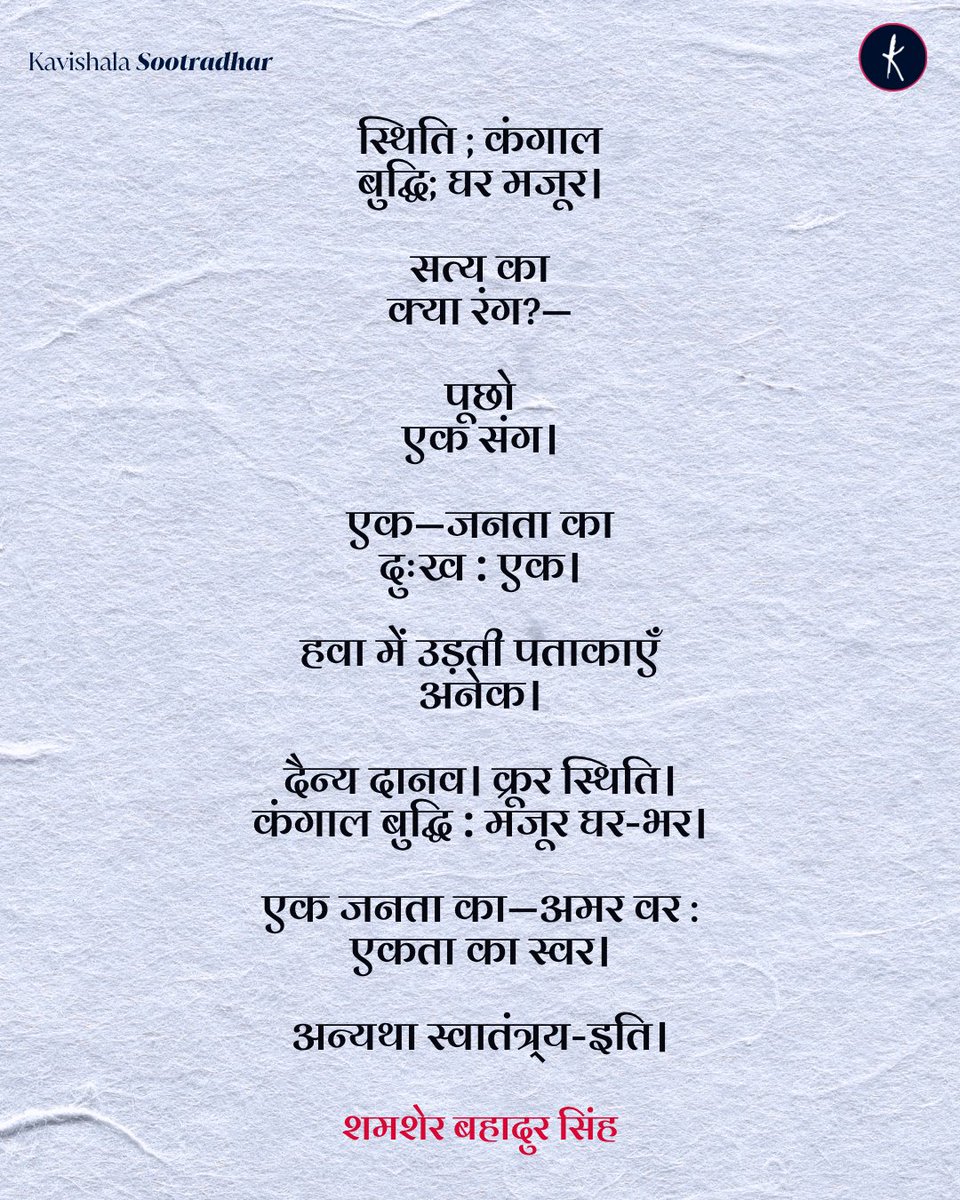 Kavishala Sootradhar
K
स्थिति ; कंगाल
बुद्धि; घर मजूर।
सत्य का
क्या रंग?—
पूछो
एक संग।
एक—जनता का
दुःख : एक।
हवा में उड़ती पताकाएँ
अनेक।
दैन्य दानव। क्रूर स्थिति।
कंगाल बुद्धि : मजूर घर-भर।
एक जनता का—अमर वर :
एकता का स्वर।
अन्यथा स्वातंत्र्य-इति।
शमशेर बहादुर सिंह